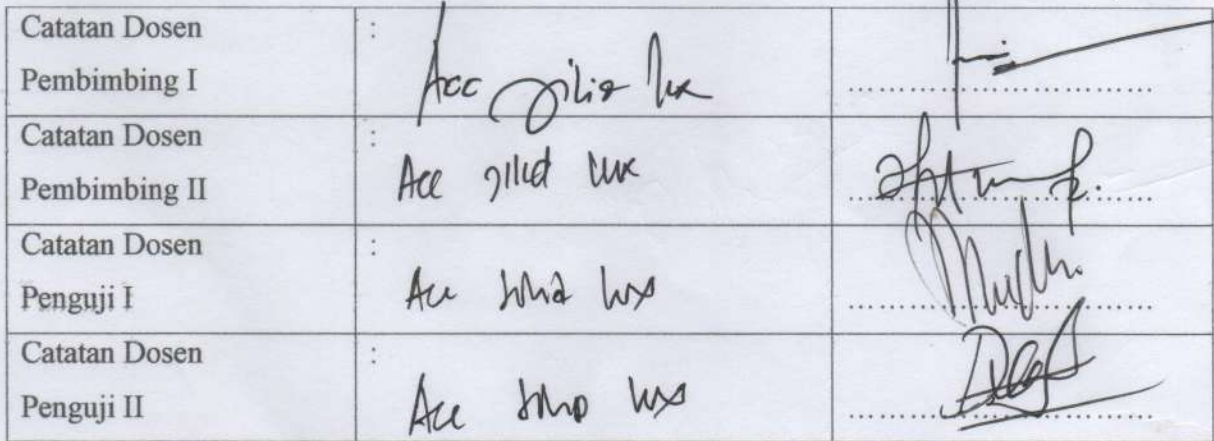 Catatan Dosen
Pembimbing I
: Acc jilid lux
Catatan Dosen
Pembimbing II
: Acc jilid lux
Catatan Dosen
Penguji I
: Acc jilid lux
Catatan Dosen
Penguji II
: Acc jilid lux